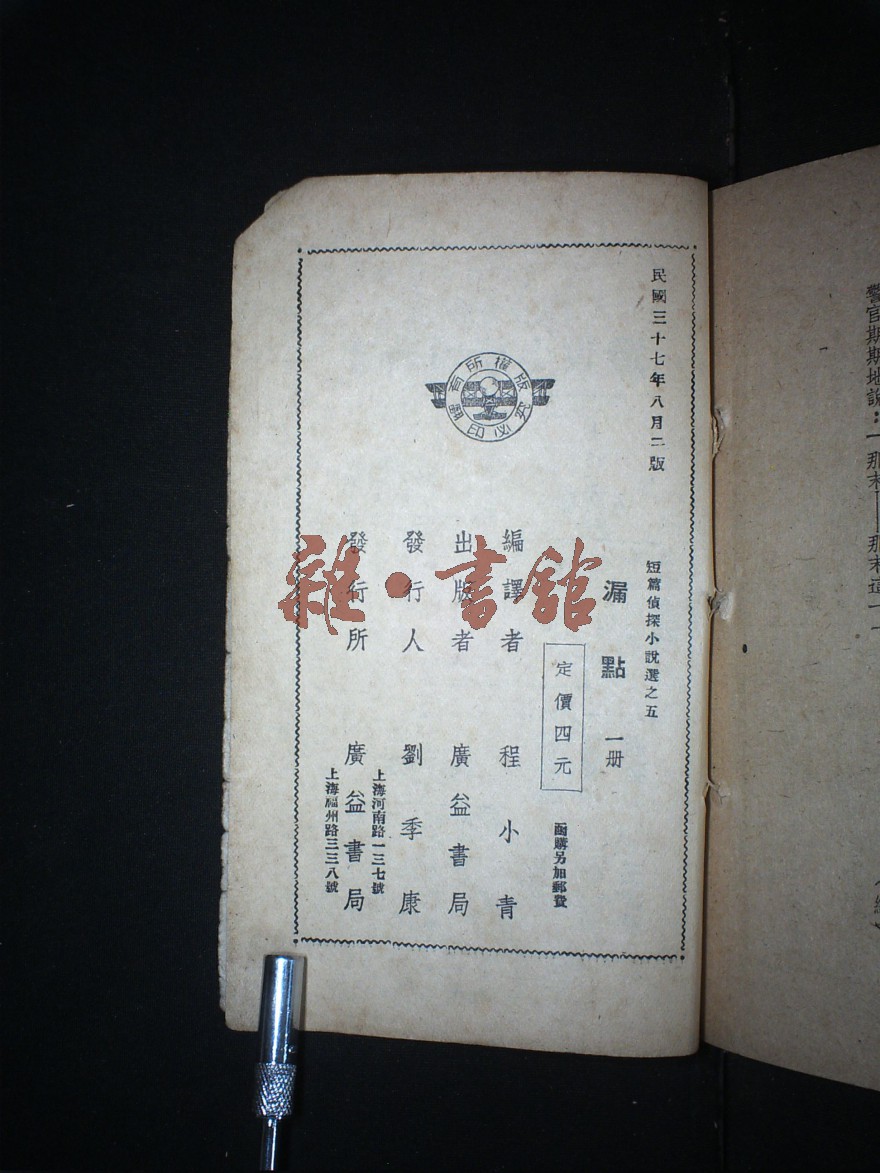 警官期期地說：「那末——那末這一一
民國三十七年八月二版
短篇偵探小說選之五
漏點 一册
定價四元
函購另加郵費
編譯者 程小青
出版者 廣益書局
發行人 劉季康
發行所 廣益書局
上海河南路一三七號
上海福州路三三八號
版權所有
翻印必究
雜·書館